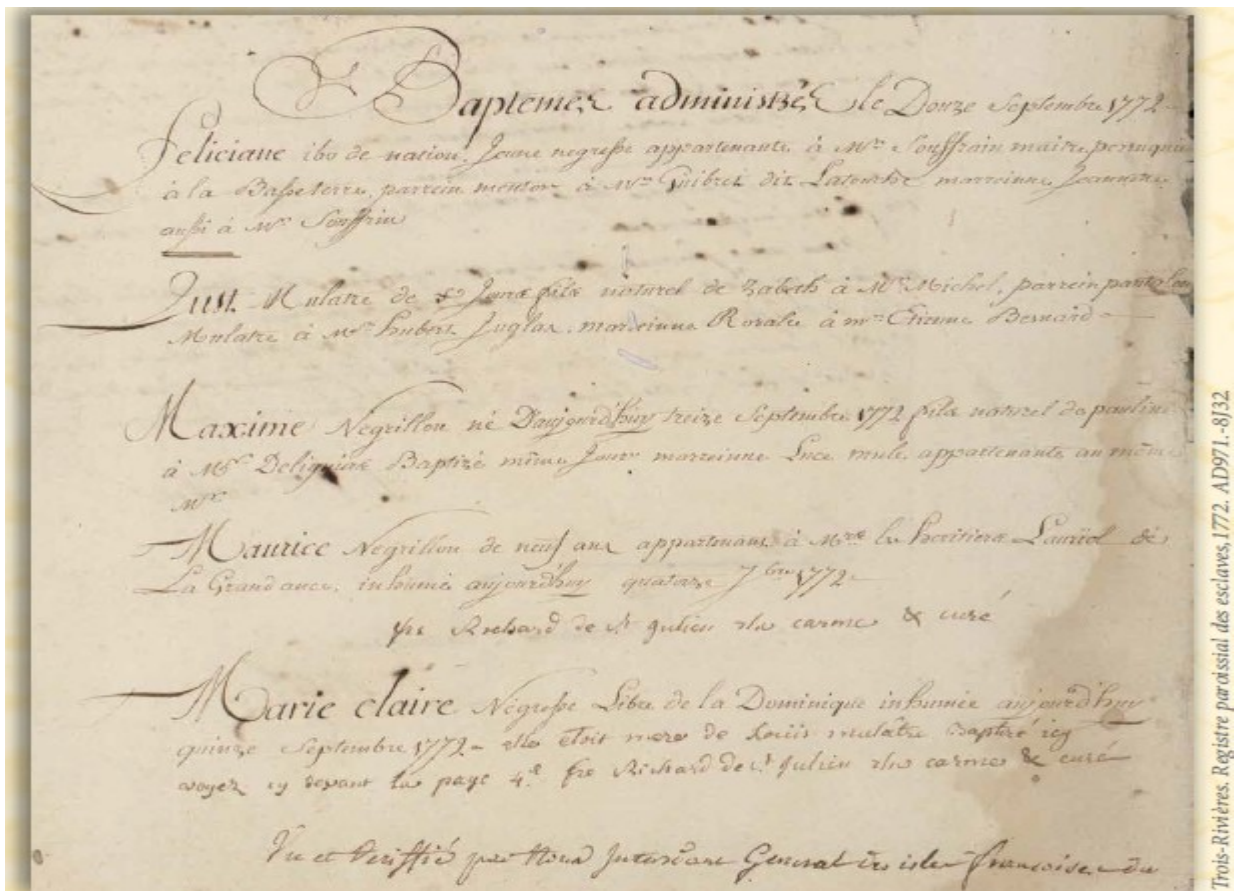 Baptemes administrés le Douze Septembre 1772
Feliciane ibo de nation, Jeune negresse appartenante à Mr. Souffrain maitre perruquier
à la Basseterre, parrein mentor à Mr. Guibret dit Latouche marreinne Jeannette
aussi à Mr. Souffrin
Just Mulatre de Jours fils naturel de Zabeth à Mr. Michel, parrein pantaleon
Mulatre à Mr. hubert Juglas, marreinne Rosalie à mr. Etienne Bernard
Maxime Negrillon né D'aujourd'huy treize Septembre 1772 fils naturel de pauline
à Mr. Deligniere Baptizé même Jour marreinne Luce mule appartenante au même
Mr.
Maurice Negrillon de neuf ans appartenant à Mrs. les heritiers Lauriol de
La Grand ance, inhumé aujourd'huy quatorze 7bre 1772
fre Richard de St Julien rlx carme & curé
Marie claire Negresse Libre de la Dominique inhumée aujourd'huy
quinze Septembre 1772 elle étoit mere de Louis mulâtre Baptisé icy
voyez cy devant la page 4e. fre Richard de St Julien rlx carme & curé
Vu et Veriffié par Nous Intendant General des isles françoises du
Trois-Rivières. Registre paroissial des esclaves, 1772. AD971.-8J32